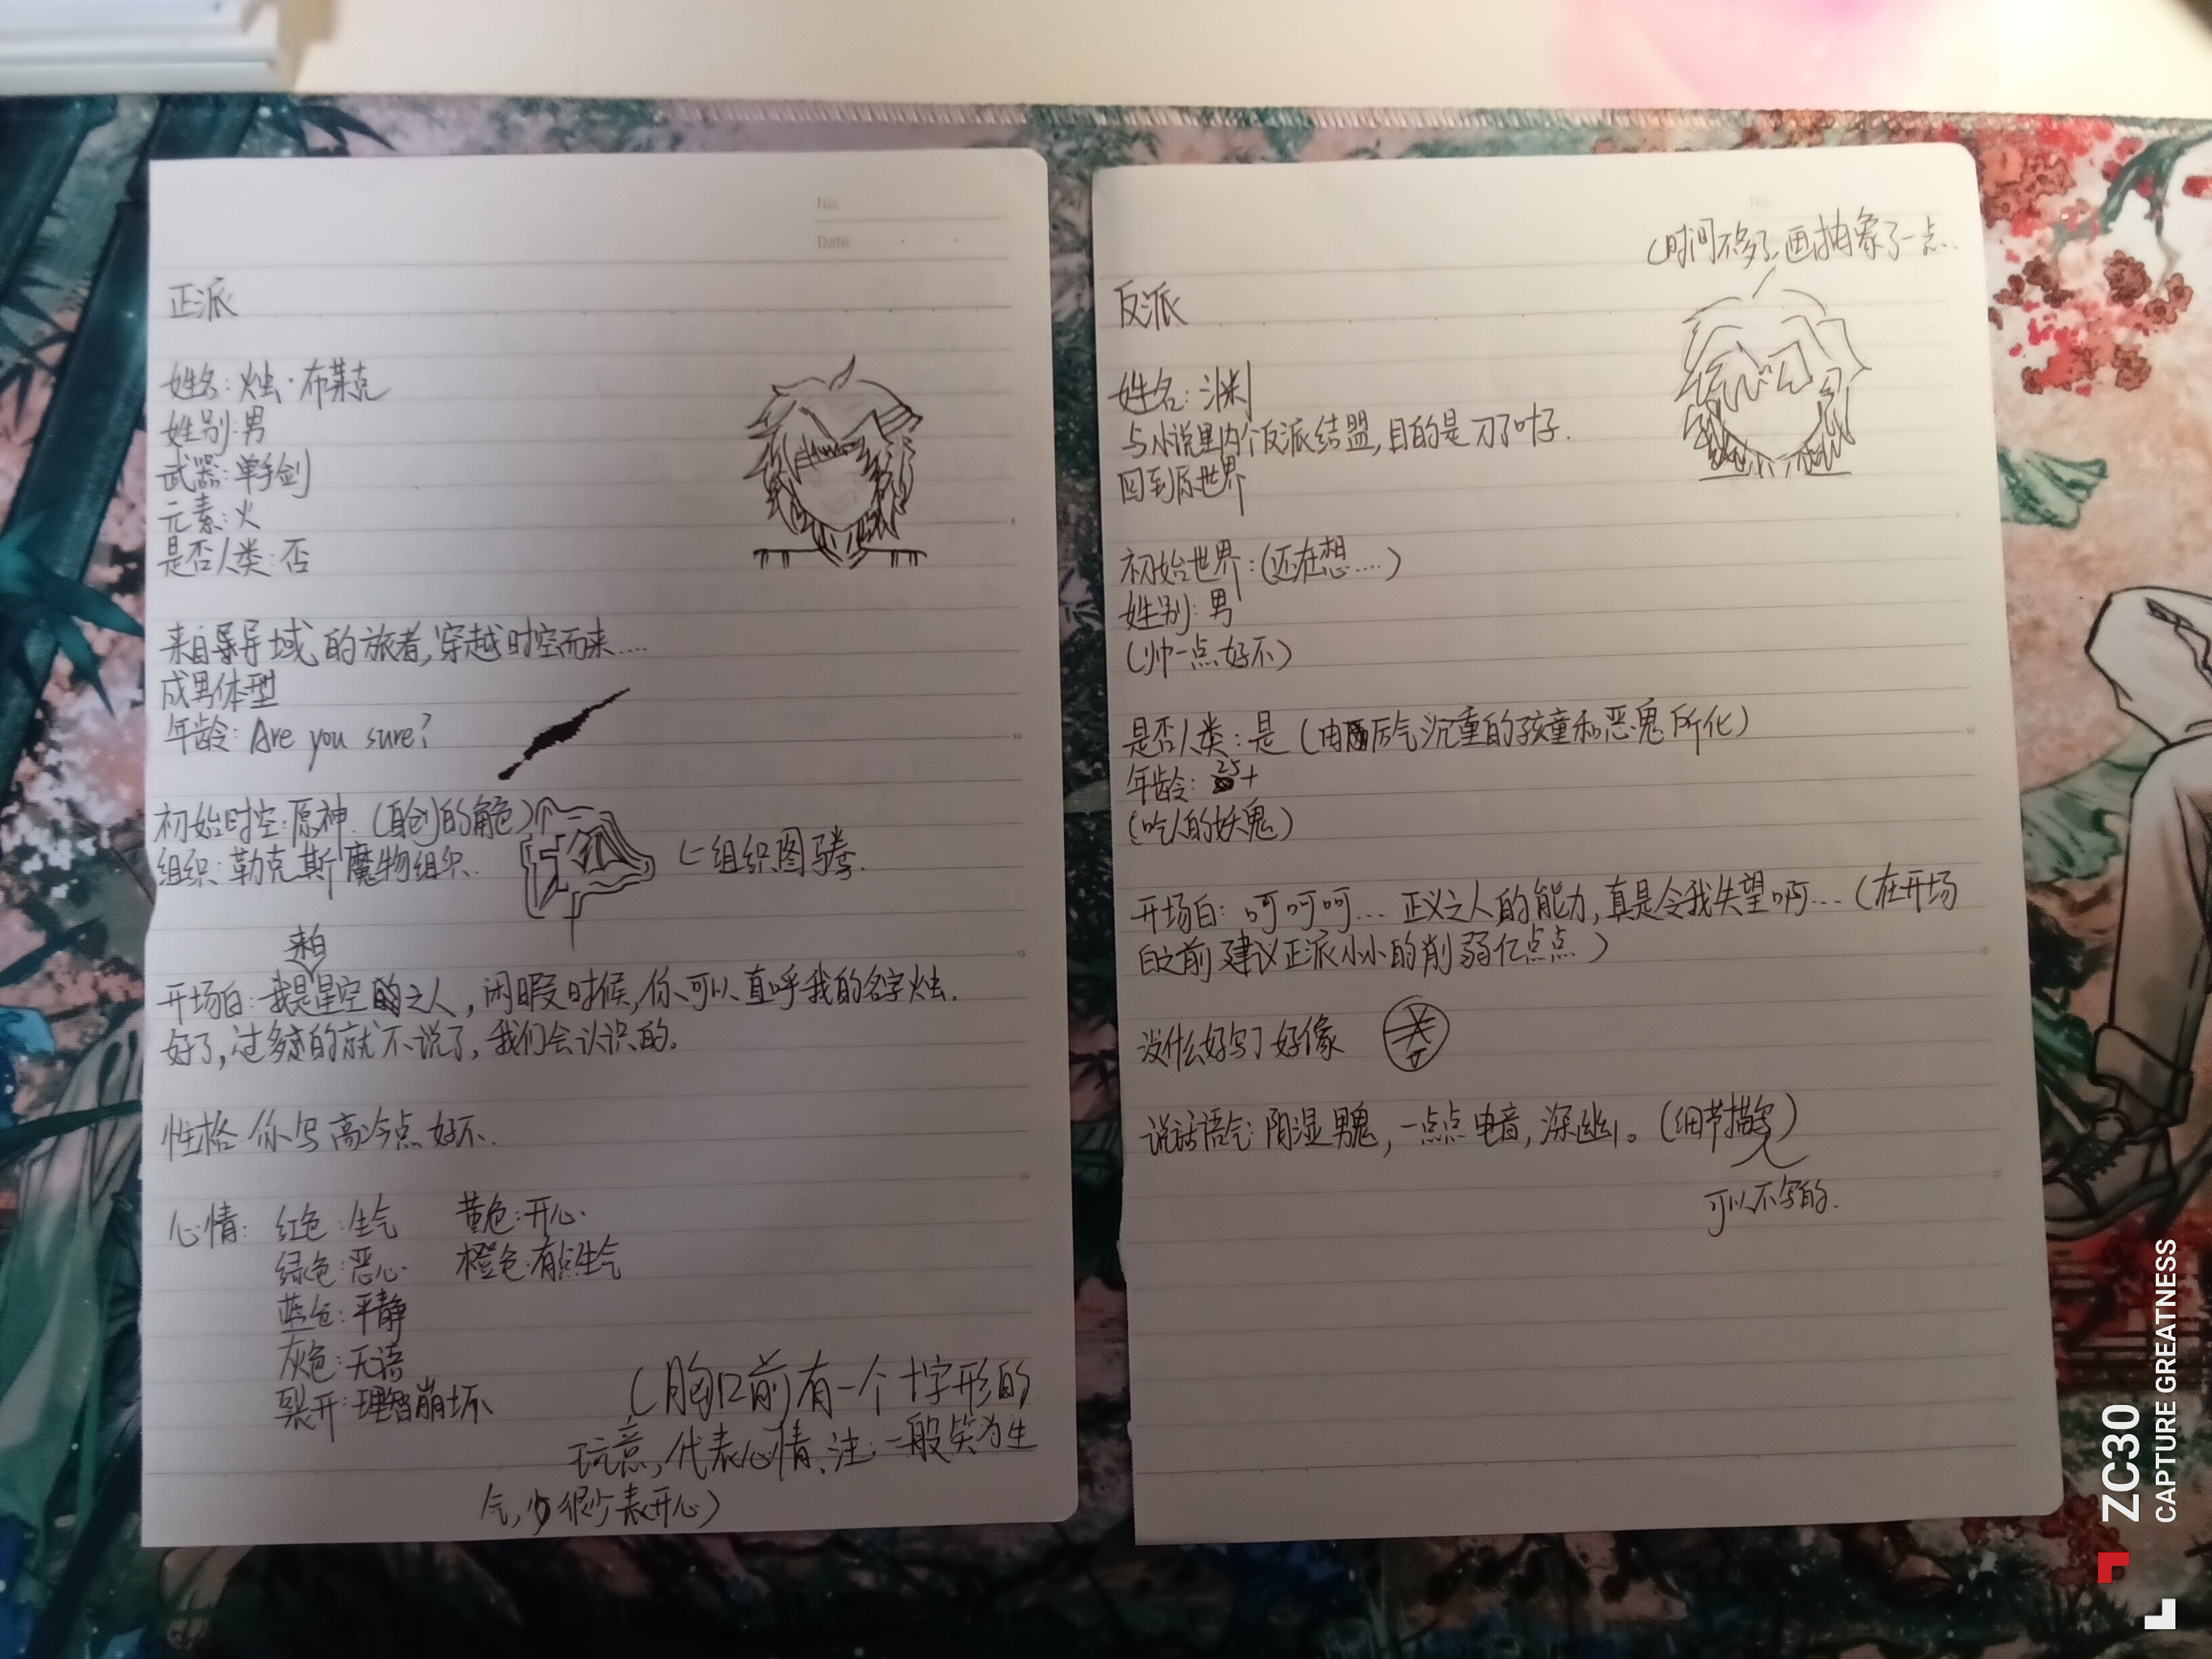 No.
Date
正派
姓名：烛·布莱克
姓别：男
武器：单手剑
元素：火
是否人类：否
来自异域的旅者，穿越时空而来....
成男体型
年龄：Are you sure?
初始时空：原神.（自创的角色）
组织：勒克斯魔物组织.
←组织图腾.
来自
开场白：我是星空之人，闲暇时候，你可以直呼我的名字烛.
好了，过多的就不说了，我们会认识的。
性格 你写高冷点好不.
心情：红色：生气 黄色：开心.
绿色：恶心. 橙色：有点生气
蓝色：平静
灰色：无语
裂开：理智崩坏
（胸口前有一个十字形的
玩意，代表心情、注：一般笑为生
气，很少表开心）
No.
（时间不多了，画抽象了一点.
反派
姓名：渊
与小说里内个反派结盟，目的是刀了叶子.
回到原世界
初始世界：（还在想....）
姓别：男
（帅一点好不）
是否人类：是（由厉气沉重的孩童和恶鬼所化）
年龄：25+
（吃人的妖鬼）
开场白：呵呵呵... 正义之人的能力，真是令我失望啊...（在开场
白之前建议正派小小的削弱亿点点）
没什么好写了好像
说话语气：阴湿男鬼，一点点电音，深幽。（细节描写）
可以不写的.
ZC30
CAPTURE GREATNESS